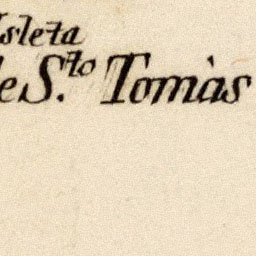 Isleta
de S.to Tomàs